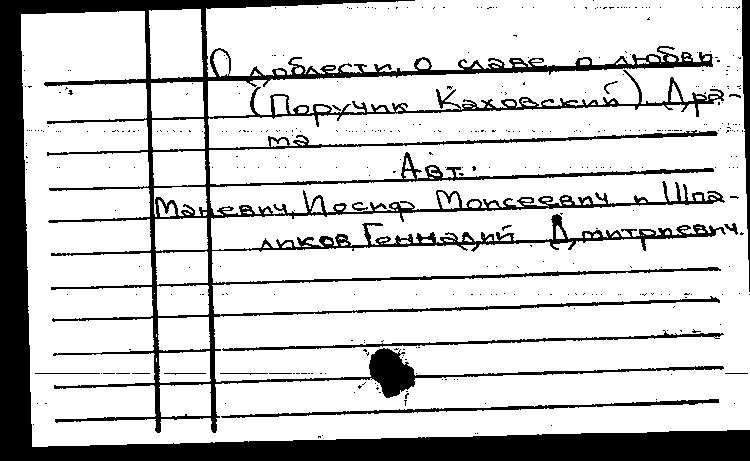 О доблести, о славе, о любви
(Поручик Каховский). Дра-
ма
Авт.:
Маневич, Иосиф Моисеевич и Шпа-
ликов, Геннадий Дмитриевич.